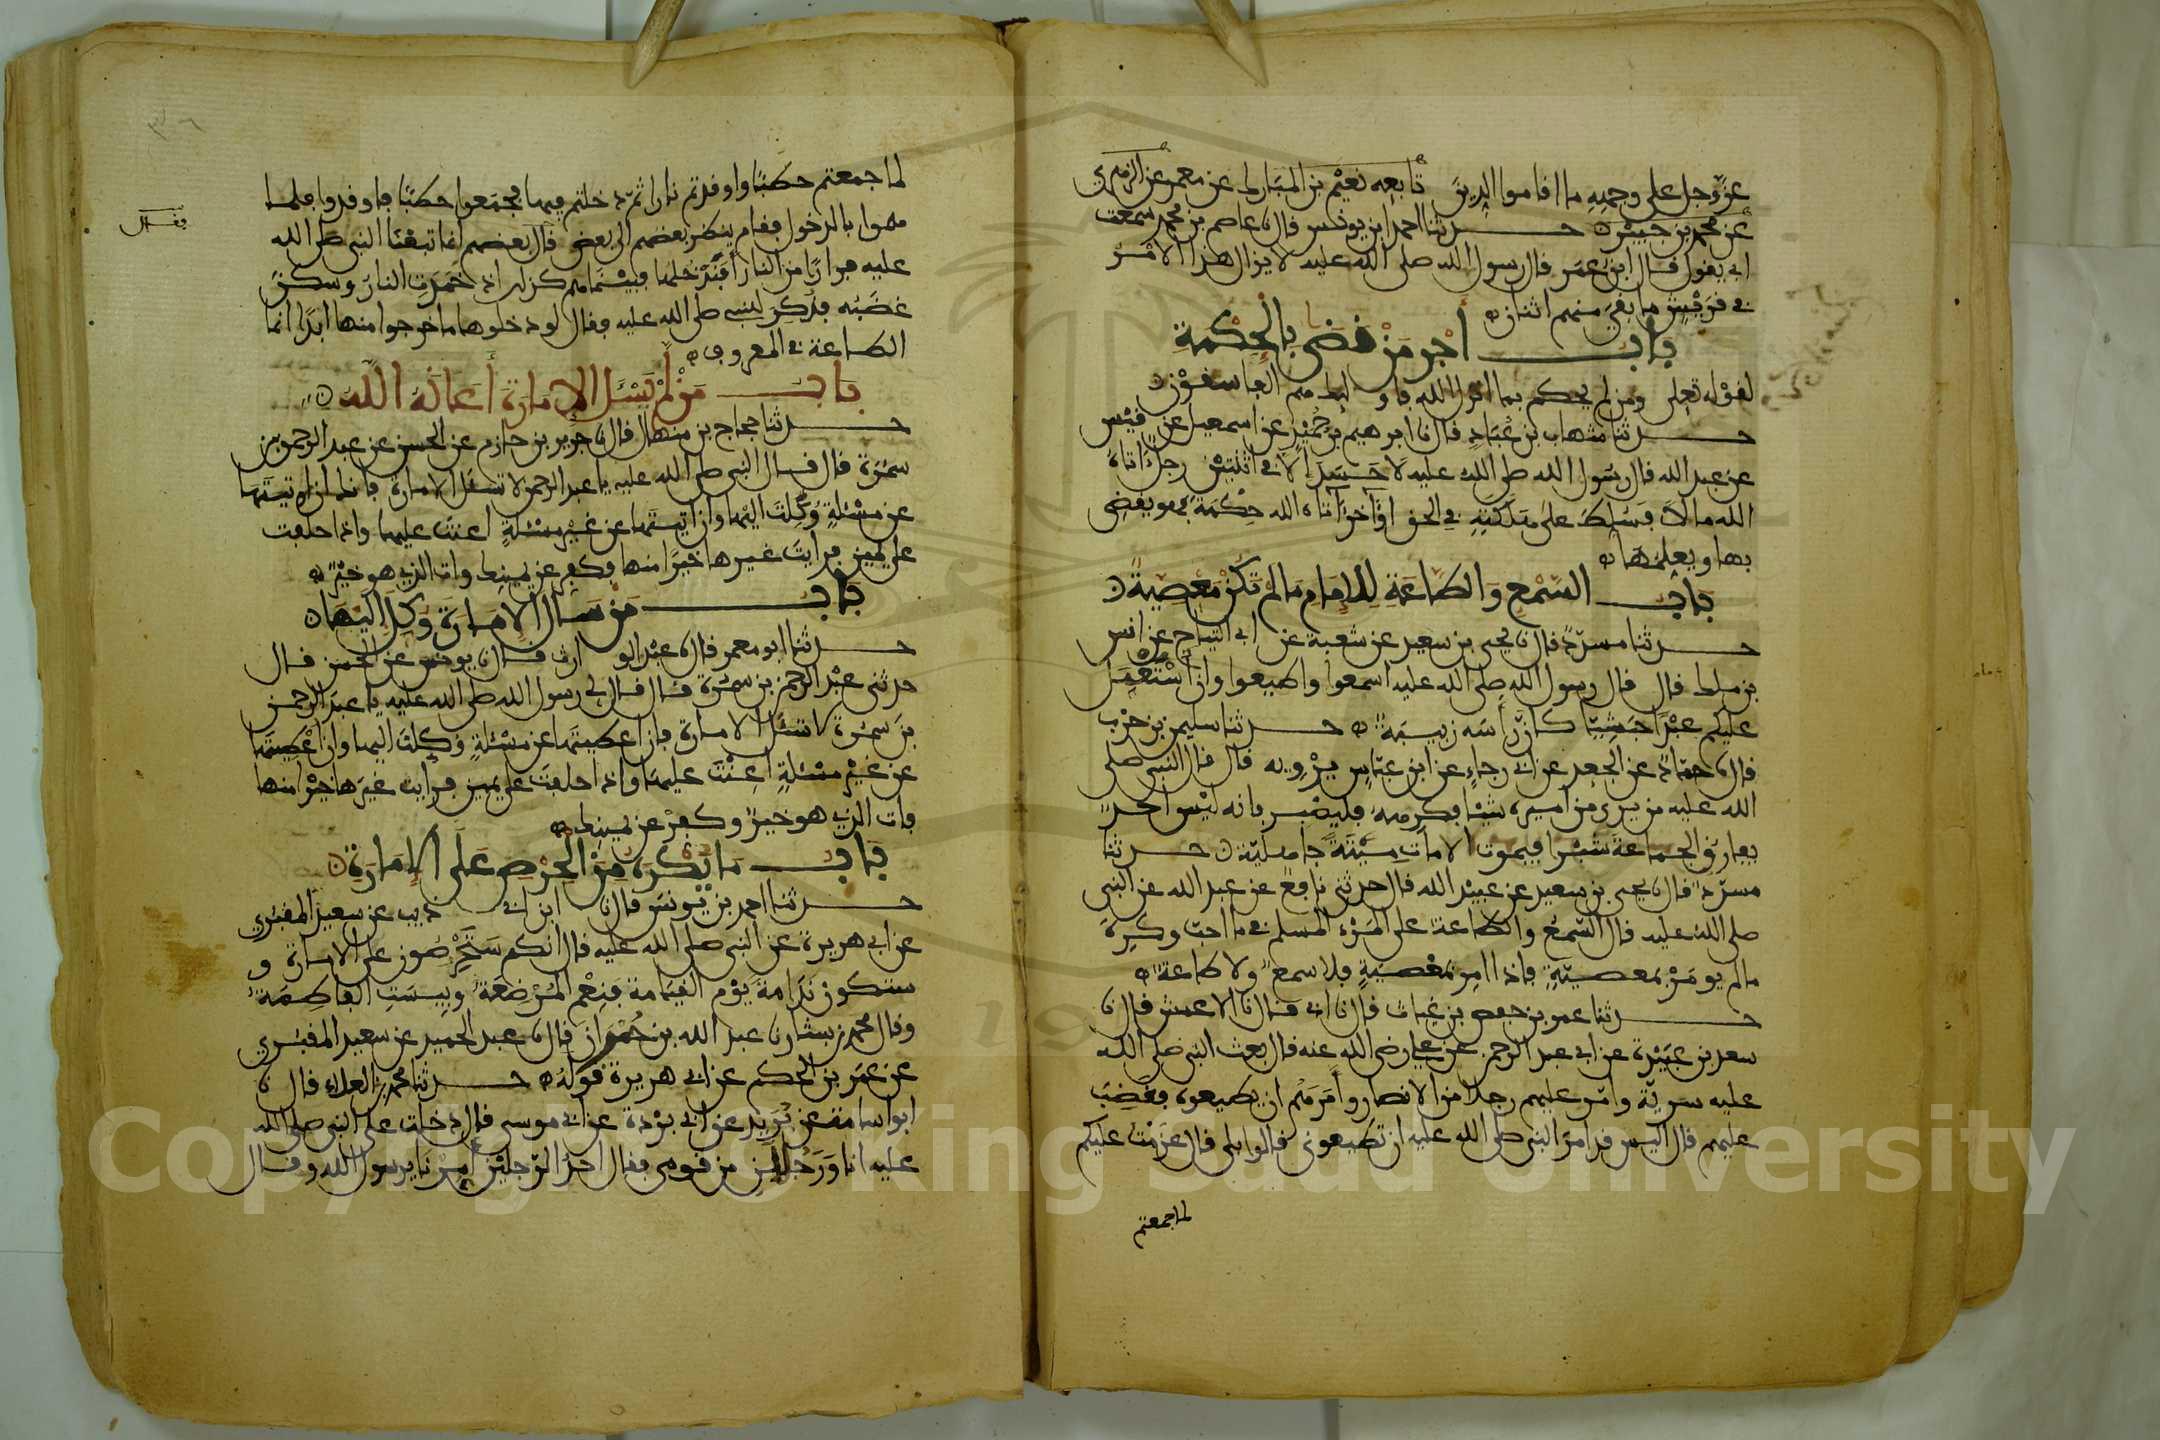 عز وجل على وجهه ما اقاموا الدين تابعه نعيم بن المبارك عن معمر عن الزهري
عن محمد بن جبير حدثنا احمد ابن يونس قال نا عاصم بن محمد سمعت
ابي يقول قال ابن عمر قال رسول الله صلى الله عليه لا يزال هذا الامر
في قريش ما بقي منهم اثنان
باب أجر من قضى بالحكمة
لقوله تعلى ومن لم يحكم بما انزل الله فاولئك هم الفاسقون
حدثنا شهاب بن عباد قال نا ابرهيم بن حميد عن اسمعيل عن قيس
عن عبد الله قال رسول الله صلى الله عليه لا حسد الا في اثنتين رجل اتاه
الله مالا فسلط على هلكته في الحق او اخر اتاه الله حكمة فهو يقضي
بها ويعلمها
باب السمع والطاعة للإمام ما لم تكن معصية
حدثنا مسدد قال نا يحيى بن سعيد عن شعبة عن ابي التياح عن انس
بن ملك قال قال رسول الله صلى الله عليه اسمعوا واطيعوا وان استعمل
عليكم عبدا حبشيا كان رأسه زبيبة حدثنا سليمن بن حرب
قال نا حماد عن الجعد عن ابي رجاء عن ابن عباس يرويه قال قال النبي صلى
الله عليه من يرى من اميره شيئا فكرهه فليصبر فانه ليس احد
يفارق الجماعة شبرا فيموت الا مات ميتة جاهلية حدثنا
مسدد قال نا يحيى بن سعيد عن عبيد الله قال حدثني نافع عن عبد الله عن النبي
صلى الله عليه قال السمع والطاعة على المرء المسلم في ما احب وكره
ما لم يومر بمعصية فاذا امر بمعصية فلا سمع ولا طاعة
حدثنا عمر بن حفص بن غياث قال نا ابي قال نا الاعمش قال نا
سعد بن عبيدة عن ابي عبد الرحمن عن علي رضي الله عنه قال بعث النبي صلى الله
عليه سرية وامر عليهم رجلا من الانصار وأمرهم ان يطيعوه فغضب
عليهم قال اليس قد امر النبي صلى الله عليه ان تطيعوني قالوا بلى قال عزمت عليكم
لما جمعتم
٣٦
لما جمعتم حطبا واوقدتم نارا ثم دخلتم فيها فجمعوا حطبا فاوقدوا فلما
هموا بالدخول فقام ينظر بعضهم الى بعض قال بعضهم انما تبعنا النبي صلى الله
فقال
عليه فرارا من النار أفندخلها فبينما هم كذلك اذ خمدت النار وسكن
غضبه فذكر للنبي صلى الله عليه فقال لو دخلوها ما خرجوا منها ابدا انما
الطاعة في المعروف
باب من لم يسئل الإمارة أعانه الله
حدثنا حجاج بن منهال قال نا جرير بن حازم عن الحسن عن عبد الرحمن بن
سمرة قال قال النبي صلى الله عليه يا عبد الرحمن لا تسئل الامارة فانك ان اوتيتها
عن مسئلة وكلت اليها وان اتيتها عن غير مسئلة اعنت عليها واذا حلفت
على يمين فرأيت غيرها خيرا منها فكفر عن يمينك وات الذي هو خير
باب من سال الامارة وكل إليها
حدثنا ابو معمر قال نا عبد الوارث قال نا يونس عن الحسن قال
حدثني عبد الرحمن بن سمرة قال قال لي رسول الله صلى الله عليه يا عبد الرحمن
بن سمرة لا تسئل الامارة فان اعطيتها عن مسئلة وكلت اليها وان اعطيتها
عن غير مسئلة اعنت عليها واذا حلفت على يمين فرايت غيرها خيرا منها
فات الذي هو خير وكفر عن يمينك
باب ما يكره من الحرص على الإمارة
حدثنا احمد بن يونس قال نا ابن ابي ذيب عن سعيد المقبري
عن ابي هريرة عن النبي صلى الله عليه قال انكم ستحرصون على الامارة و
ستكون ندامة يوم القيامة فنعم المرضعة وبيست الفاطمة
وقال محمد بن بشار نا عبد الله بن حمران قال نا عبد الحميد عن سعيد المقبري
عن عمر بن الحكم عن ابي هريرة قوله حدثنا محمد بن العلاء قال نا
ابو اسامة عن بريد عن ابي بردة عن ابي موسى قال دخلت على النبي صلى الله
عليه انا ورجلين من قومي فقال احد الرجلين امرنا يرسول الله وقال
Copyright © King Saud University